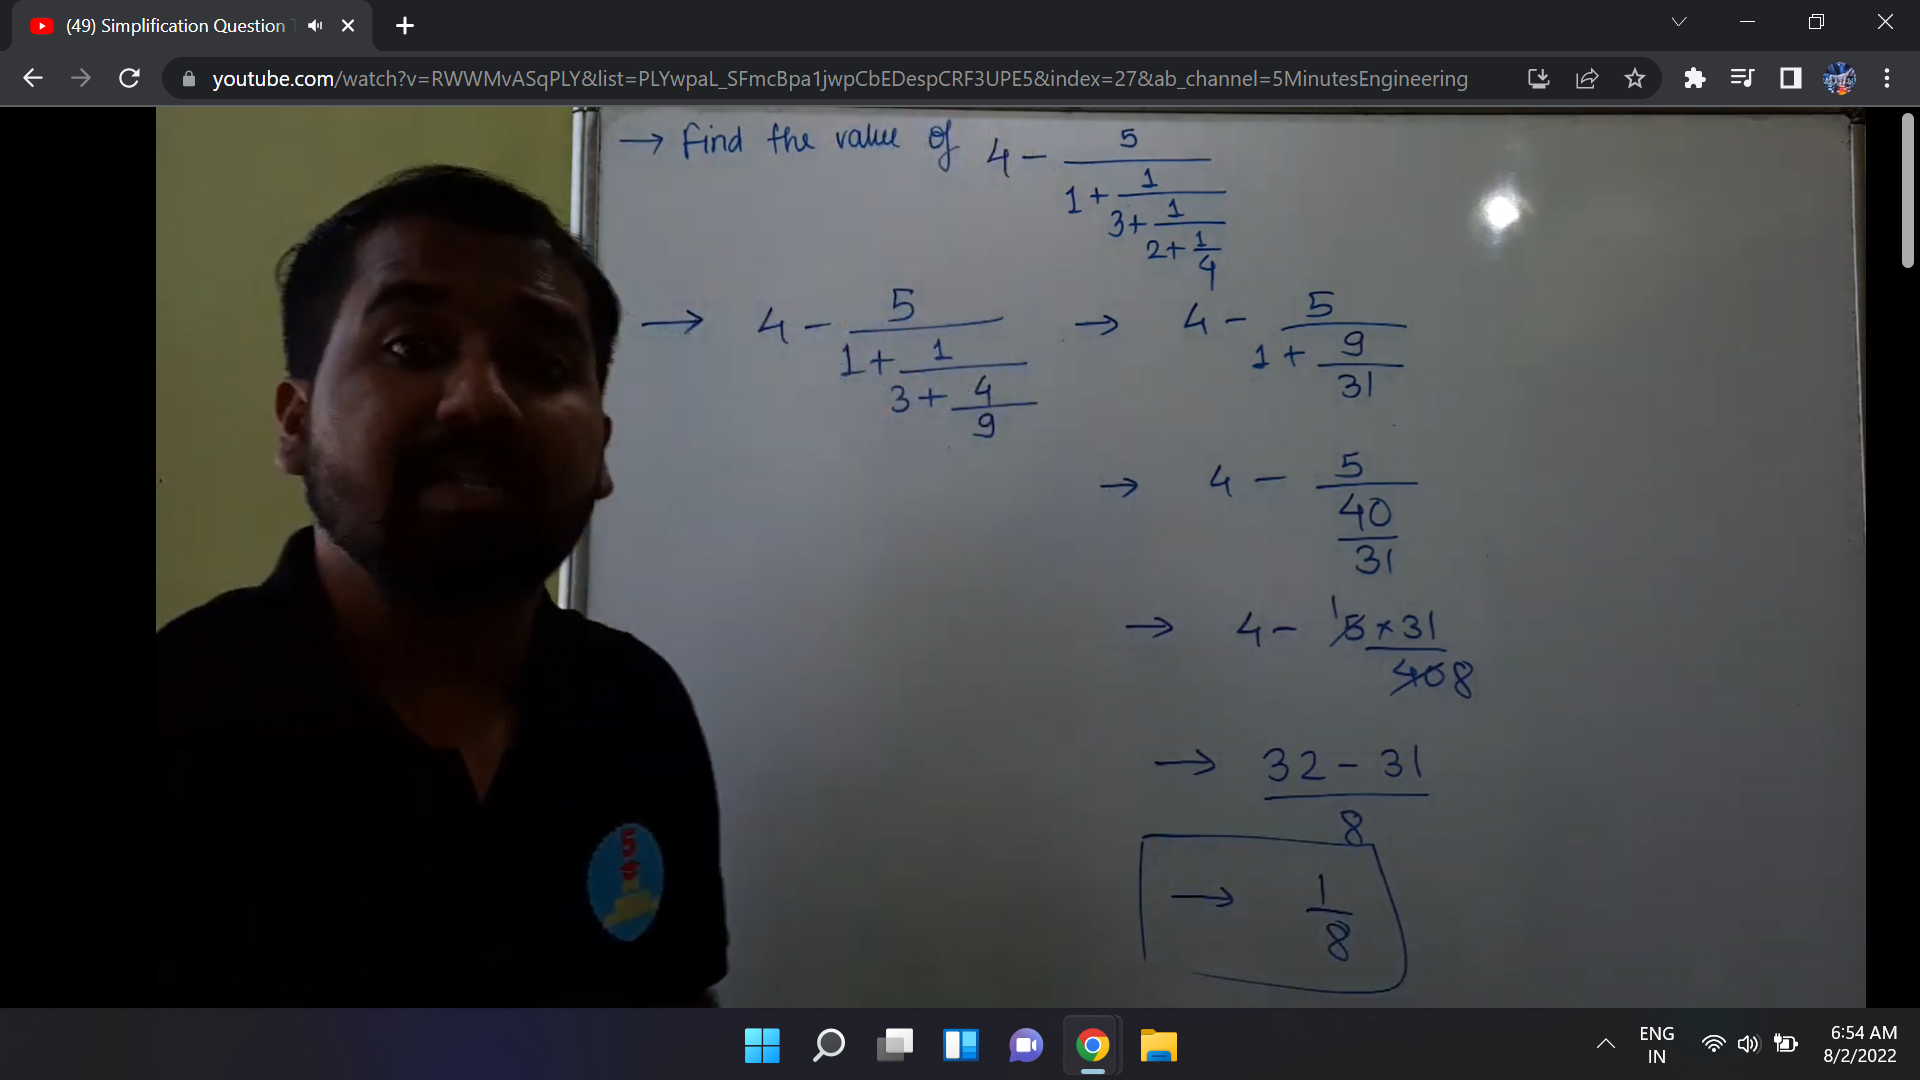 (49) Simplification Question
youtube.com/watch?v=RWWMvASqPLY&list=PLYwpaL_SFmcBpa1jwpCbEDespCRF3UPE5&index=27&ab_channel=5MinutesEngineering
→ Find the value of 4 - 5/(1+1/(3+1/(2+1/4)))
→ 4 - 5/(1+1/(3+4/9)) → 4 - 5/(1+9/31)
→ 4 - 5/(40/31)
→ 4 - 1 5×31/40 8
→ 32-31/8
→ 1/8
5
ENG
IN
6:54 AM
8/2/2022